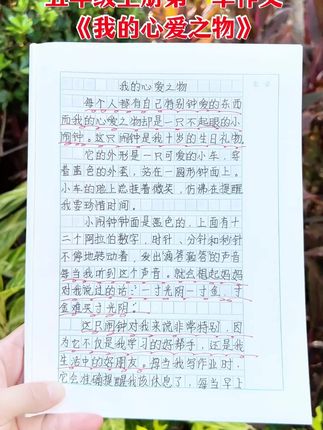 五年级上册第一单元作文
《我的心爱之物》
我的心爱之物
每个人都有自己特别钟爱的东西
而我的心爱之物却是一只不起眼的小
闹钟。这只闹钟是我十岁的生日礼物
它的外形是一只可爱的小车，穿
着蓝色的外套，站在一圆形钟面上。
小车的脸上总挂着微笑，仿佛在提醒
我要珍惜时间。
小闹钟钟面是蓝色的，上面有十
二个阿拉伯数字，时针、分针和秒针
不停地转动着，发出滴答滴答的声音
每当我听到这个声音，就会想起妈妈
对我说过的话：一寸光阴一寸金，寸
金难买寸光阴。
这只闹钟对我来说非常特别，因
为它不仅是我学习的好帮手，还是我
生活中的好朋友。每当我写作业时，
它会准确提醒我该休息了，每当早上